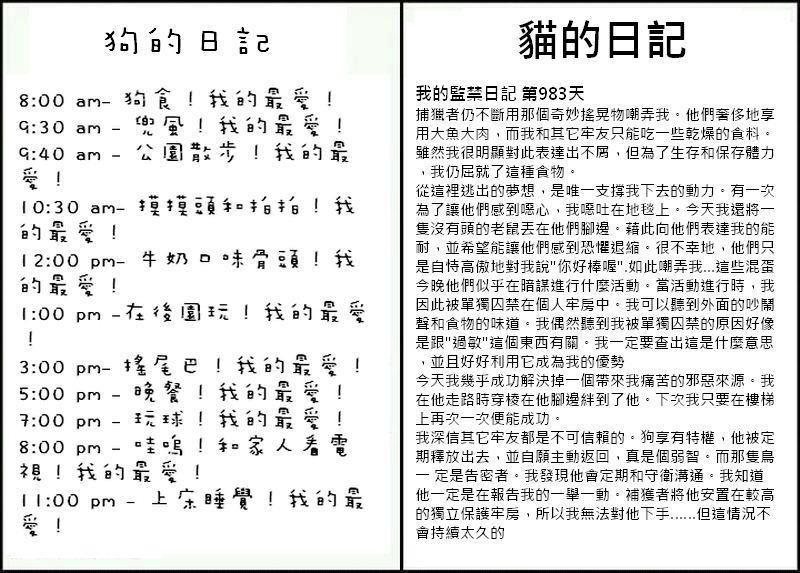 狗的日記
8:00 am– 狗食！我的最愛！
9:30 am – 兜風！我的最愛！
9:40 am – 公園散步！我的最
愛！
10:30 am– 摸摸頭和拍拍！我
的最愛！
12:00 pm– 牛奶口味骨頭！我
的最愛！
1:00 pm –在後園玩！我的最愛
！
3:00 pm– 搖尾巴！我的最愛！
5:00 pm – 晚餐！我的最愛！
7:00 pm – 玩球！我的最愛！
8:00 pm – 哇嗚！和家人看電
視！我的最愛！
11:00 pm – 上床睡覺！我的最
愛！
貓的日記
我的監禁日記 第983天
捕獵者仍不斷用那個奇妙搖晃物嘲弄我。他們奢侈地享
用大魚大肉，而我和其它牢友只能吃一些乾燥的食料。
雖然我很明顯對此表達出不屑，但為了生存和保存體力
，我仍屈就了這種食物。
從這裡逃出的夢想，是唯一支撐我下去的動力。有一次
為了讓他們感到噁心，我嘔吐在地毯上。今天我還將一
隻沒有頭的老鼠丟在他們腳邊。藉此向他們表達我的能
耐，並希望能讓他們感到恐懼退縮。很不幸地，他們只
是自恃高傲地對我說"你好棒喔".如此嘲弄我...這些混蛋
今晚他們似乎在暗謀進行什麼活動。當活動進行時，我
因此被單獨囚禁在個人牢房中。我可以聽到外面的吵鬧
聲和食物的味道。我偶然聽到我被單獨囚禁的原因好像
是跟"過敏"這個東西有關。我一定要查出這是什麼意思
，並且好好利用它成為我的優勢
今天我幾乎成功解決掉一個帶來我痛苦的邪惡來源。我
在他走路時穿梭在他腳邊絆到了他。下次我只要在樓梯
上再次一次便能成功。
我深信其它牢友都是不可信賴的。狗享有特權，他被定
期釋放出去，並自願主動返回，真是個弱智。而那隻鳥
一定是告密者。我發現他會定期和守衛溝通。我知道
他一定是在報告我的一舉一動。補獲者將他安置在較高
的獨立保護牢房，所以我無法對他下手......但這情況不
會持續太久的